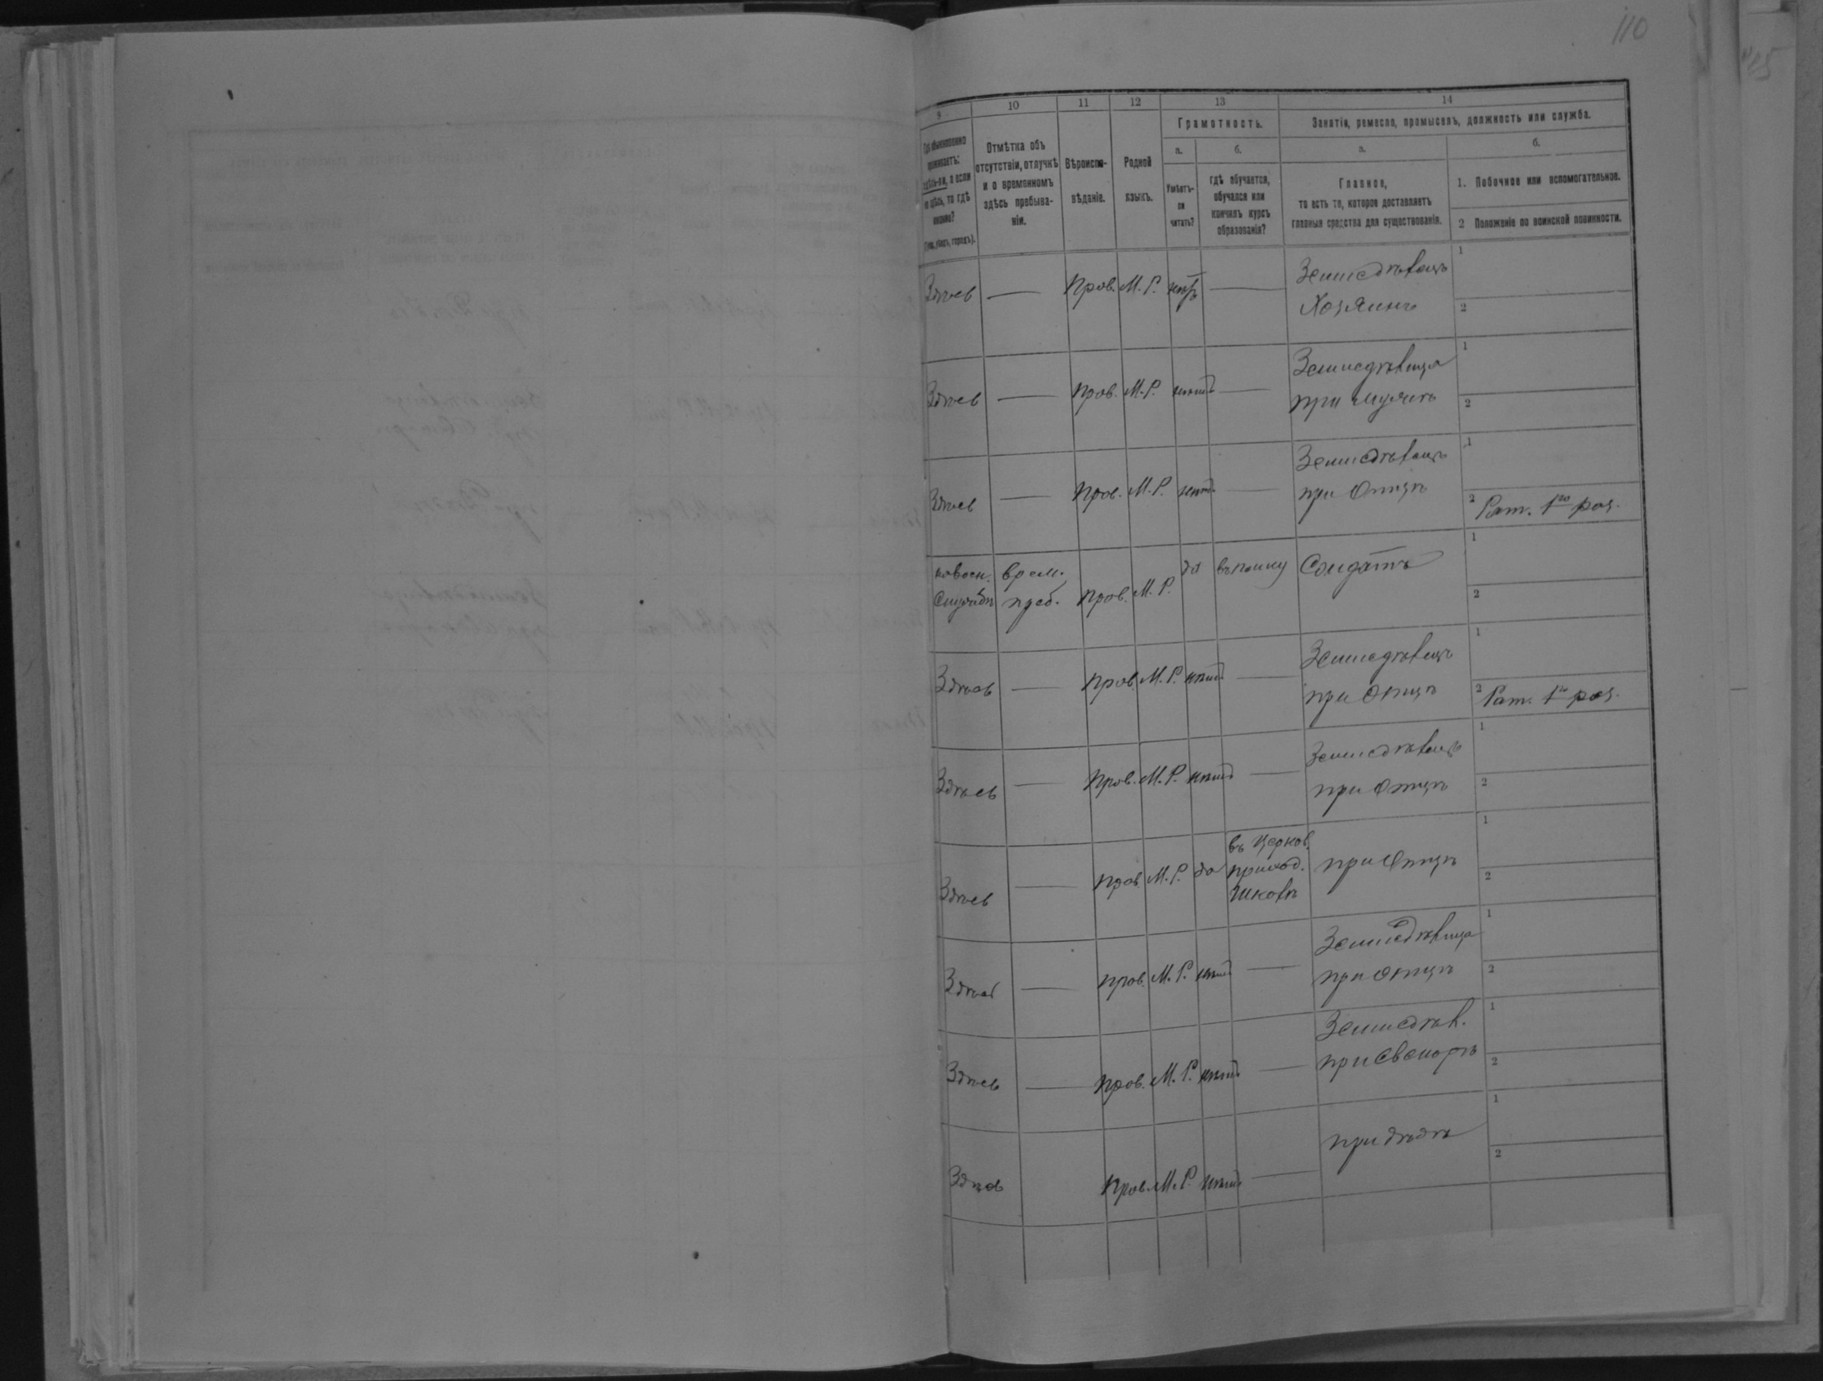 110
9 10 11 12 13 14
Грамотность. Занятіе, ремесло, промыселъ, должность или служба.
а. б. а. б.
Гдѣ обыкновенно
проживаетъ:
здѣсь-ли, а если
не здѣсь, то гдѣ
именно?
(Губ., уѣздъ, городъ).
Отмѣтка объ
отсутствіи, отлучкѣ
и о временномъ
здѣсь пребыва-
ніи.
Вѣроиспо-
вѣданіе.
Родной
языкъ.
Умѣетъ-
ли
читать?
гдѣ обучается,
обучался или
кончилъ курсъ
образованія?
Главное,
то есть то, которое доставляетъ
главныя средства для существованія.
1. Побочное или вспомогательное.
2 Положеніе по воинской повинности.
Здѣсь — Пров. М. Р. нѣтъ — Земледѣлецъ 1
Хозяинъ 2
Здѣсь — Пров. М. Р. нѣтъ — Земледѣлица 1
при мужѣ 2
Здѣсь — Пров. М. Р. нѣтъ — Земледѣлецъ 1
при отцѣ 2 Рат. 1го раз.
на воен. врем. да въ полку Солдатъ 1
службѣ преб. Пров. М. Р. 2
Здѣсь — Пров. М. Р. нѣтъ — Земледѣлецъ 1
при отцѣ 2 Рат. 1го раз.
Здѣсь — Пров. М. Р. нѣтъ — Земледѣлецъ 1
при отцѣ 2
въ церков. 1
Здѣсь — Пров. М. Р. да приход. при отцѣ 2
школѣ
Здѣсь — Пров. М. Р. нѣтъ — Земледѣлица 1
при отцѣ 2
Здѣсь — Пров. М. Р. нѣтъ — Земледѣл. 1
при свекорѣ 2
Здѣсь Пров. М. Р. нѣтъ — при дѣдѣ 1
2